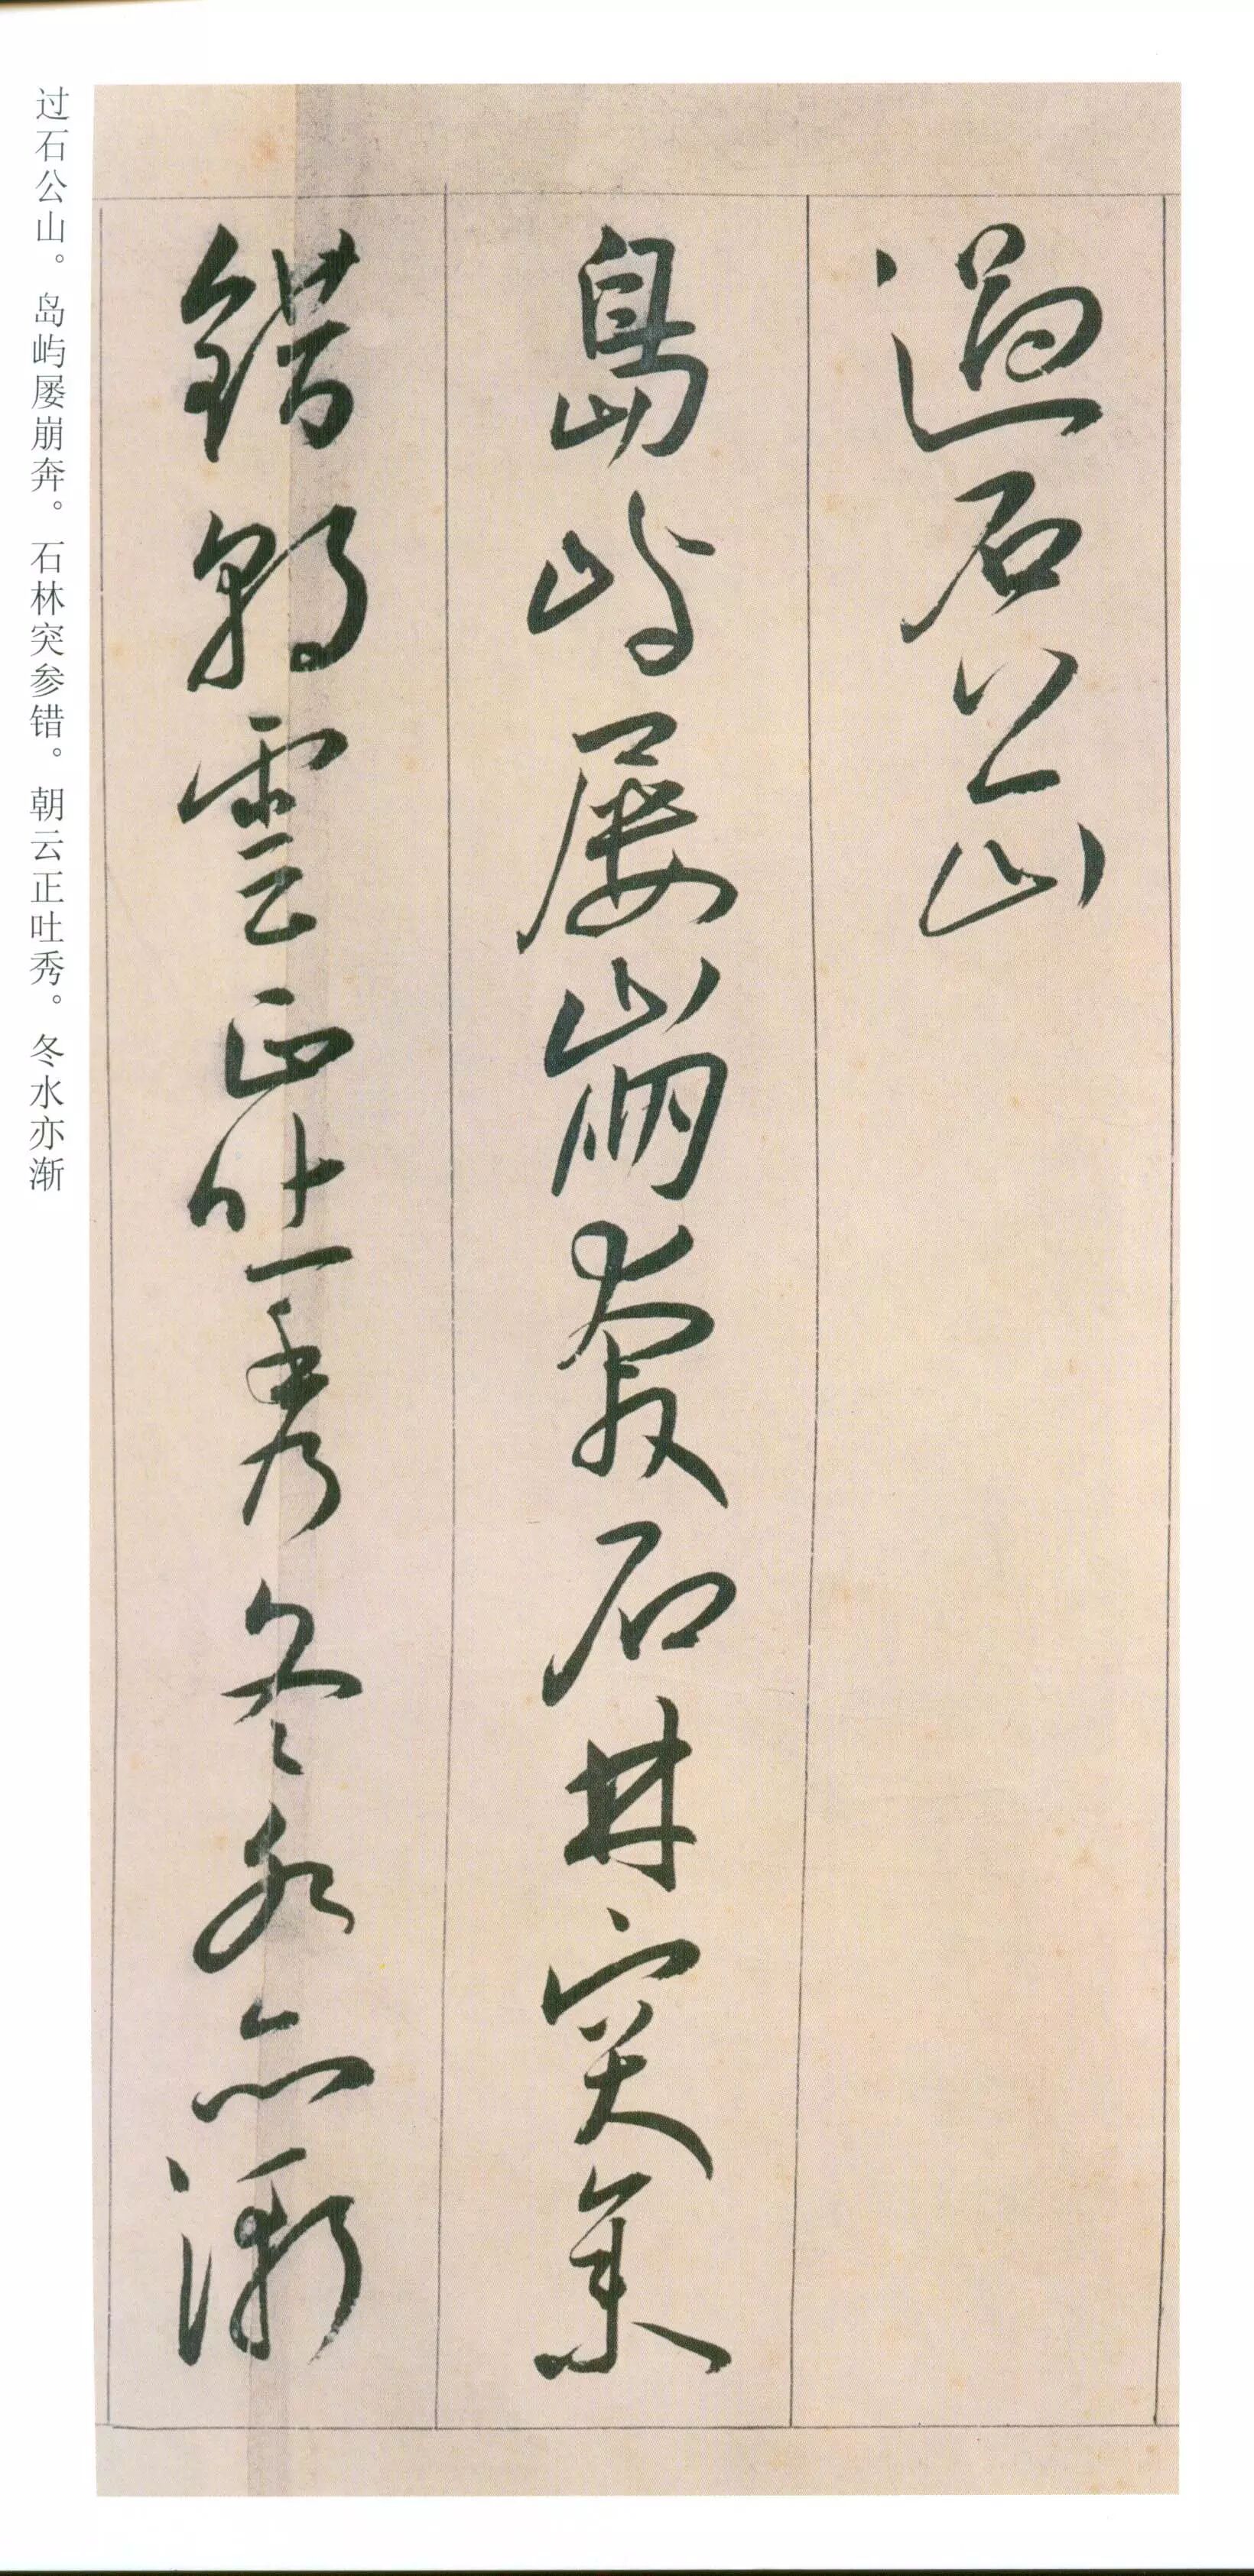 過石公山
島嶼屢崩奔石林突参
錯朝雲正吐秀冬水亦漸
过石公山。岛屿屡崩奔。石林突参错。朝云正吐秀。冬水亦渐